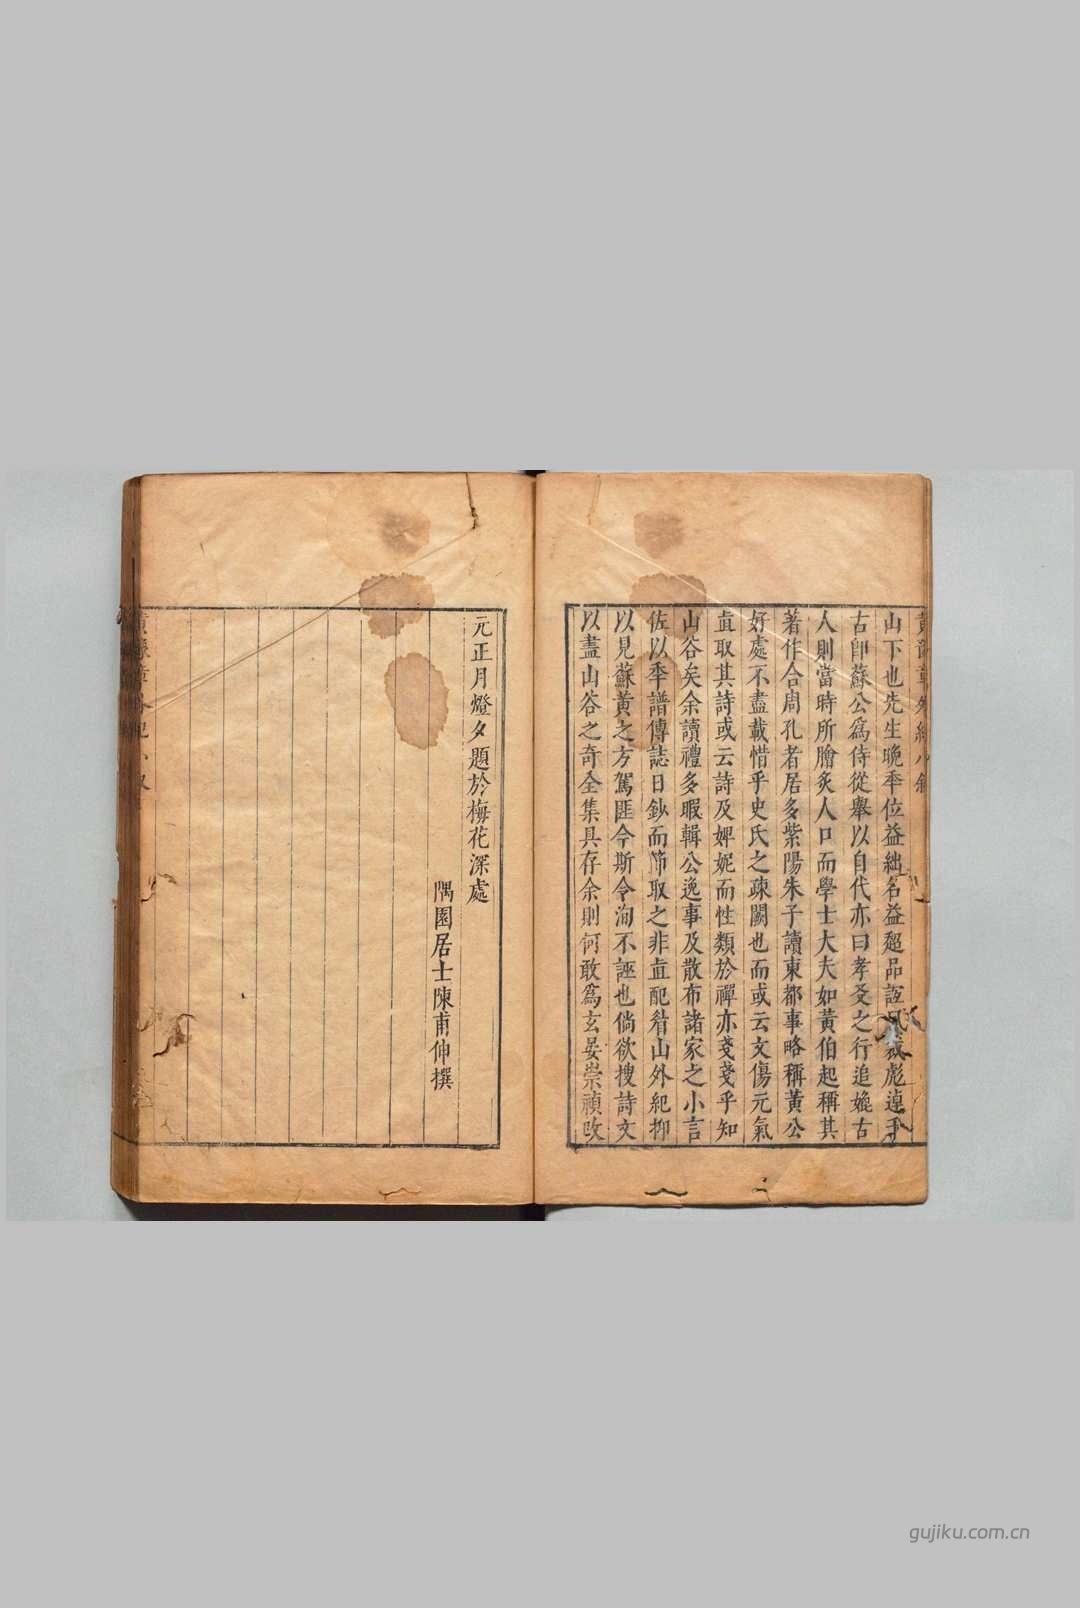 山下也先生晚年位益絀名益超品詣風裁彪連于
古即蘇公爲侍從舉以自代亦曰孝友之行追媲古
人則當時所膾炙人口而學士大夫如黃伯起稱其
著作合周孔者居多紫陽朱子讀東都事略稱黃公
好處不盡載惜乎史氏之疎闕也而或云文傷元氣
直取其詩或云詩及婢妮而性類於禪亦戔戔乎知
山谷矣余讀禮多暇輯公逸事及散布諸家之小言
佐以季譜傳誌日鈔而節取之非直配眉山外紀抑
以見蘇黃之方駕匪今斯今洵不誣也倘欲搜詩文
以盡山谷之奇全集具存余則何敢爲玄晏崇禎改
元正月燈夕題於梅花深處
隅園居士陳甫伸撰
gujiku.com.cn